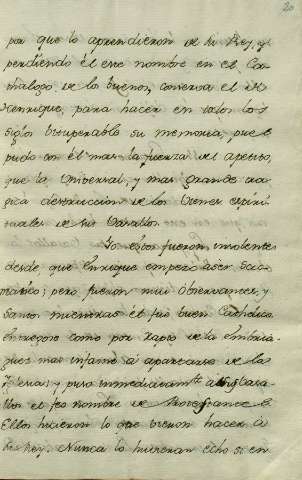 20
por que lo aprendieron de su Rey, y
perdiendo él este nombre en el Ca-
thalogo de los buenos, conserva el de
Henrique, para hacer en todos los
siglos vituperable su memoria, pues
pudo con él mas la fuerza del apetito,
que la Universal, y mas grande tra-
gica destruccion de los Ordenes espiri-
tuales de sus Vasallos.
Todos estos fueron insolentes
desde que Enrique empezó á ser Scis-
matico; pero fueron mui observantes, y
Santos mientras él fue buen Catholico
Entregose como por rapto de la embria-
guez mas infame á apartarse de la
Iglesia; y puso inmediatamte. á sus Vasa-
llos el feo nombre de Protestantes
Ellos hicieron lo que vieron hacer á
su Rey. Nunca lo hubieran echo si en